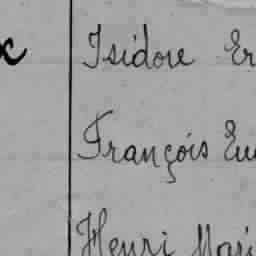 x Isidore Er
François Eu
Henri Mari